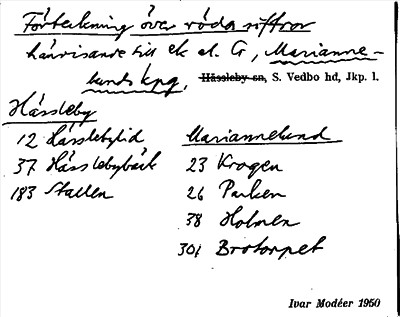 Förteckning över röda siffror
hänvisande till ek. bl. G, Marianne-
lunds kpg, Hässleby sn, S. Vedbo hd, Jkp. l.
Hässleby
12 Hässlebylid
37 Hässlebybäck
183 Stallen
Mariannelund
23 Krogen
26 Parken
38 Holmen
301 Brotorpet
Ivar Modéer 1950